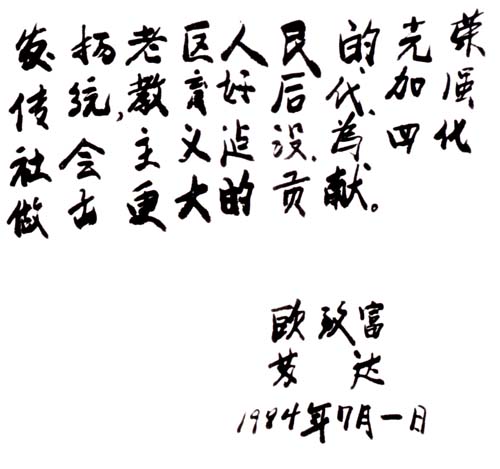 发扬老区人民的光荣
传统,教育好后代,加强
社会主义建设,为四化
做出更大的贡献。
欧致富
苏达
1984年7月一日